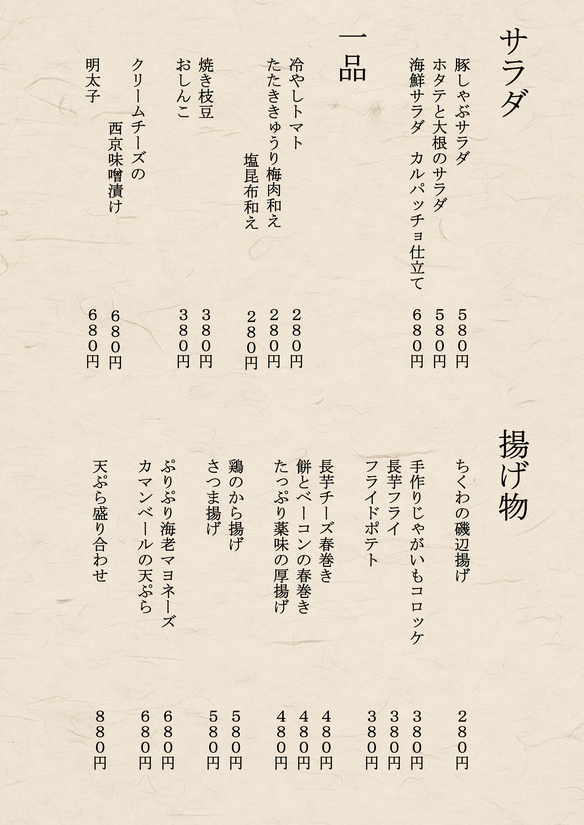 サラダ
豚しゃぶサラダ 580円
ホタテと大根のサラダ 580円
海鮮サラダ カルパッチョ仕立て 680円
一品
冷やしトマト 280円
たたききゅうり梅肉和え 280円
塩昆布和え 280円
焼き枝豆 380円
おしんこ 380円
クリームチーズの
西京味噌漬け 680円
明太子 680円
揚げ物
ちくわの磯辺揚げ 280円
手作りじゃがいもコロッケ 380円
長芋フライ 380円
フライドポテト 380円
長芋チーズ春巻き 480円
餅とベーコンの春巻き 480円
たっぷり薬味の厚揚げ 480円
鶏のから揚げ 580円
さつま揚げ 580円
ぷりぷり海老マヨネーズ 680円
カマンベールの天ぷら 680円
天ぷら盛り合わせ 880円